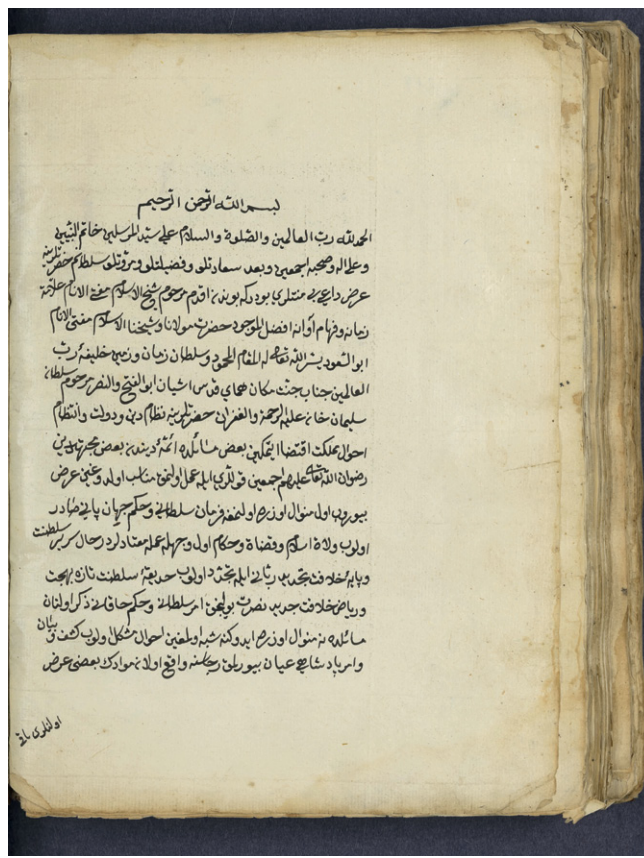 بسم الله الرحمن الرحيم
الحمد لله رب العالمين والصلوة والسلام على سيد المرسلين خاتم النبيين
وعلى اله وصحبه اجمعين وبعد سعادتلو وفضيلتلو ومروتلو سلطانم حضرتلرينه
عرض داعي بى منتلرى بودركه بوندن اقدم مرحوم شيخ الاسلام مفتى الانام علامۀ
زمانه وفهام اوانه افضل الموجود حضرت مولانا وشيخنا الاسلام مفتى الانام
ابو السعود يسر الله تعالى له المقام المحمود سلطان زمان وزمين خليفۀ رب
العالمين جناب جنت مكان هماى قدس اشيان ابو الفتح والنصر مرحوم سلطان
سليمان خان عليه الرحمة والغفران حضرتلرينه نظام دين ودولت وانتظام
احوال مملكت اقتضا ايتمكين بعض مسائلده ائمۀ ديندن بعض مجتهدين
رضوان الله تعالى عليهم اجمعين قوللرى ايله عمل اولنمق مناسب اولدوغين عرض
بيوروب اول منوال اوزره اولنمغه فرمان سلطانى وحكم جهان بانى صادر
اولوب ولاة اسلام وقضاة وحكام اول وجهله عمله معتادلردر حال سرير سلطنت
وپايۀ خلافت تجديد ربانى ايله تجدد اولوب حديقۀ سلطنت تازه بهجت
ورياض خلافت جديد نضرت بولمغين امر سلطانى وحكم خاقانى ذكر اولنان
مسائلده نه منوال اوزره ايدوكنه شبه اولمغين احوال مشكل اولوب كشف وبيان
وامر پادشاهى عيان بيوريلمق رجاسنه واقع اولان موادك بعضى عرض
اولنلرى